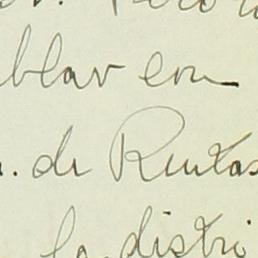 blar en
a. de Rentas
la distri